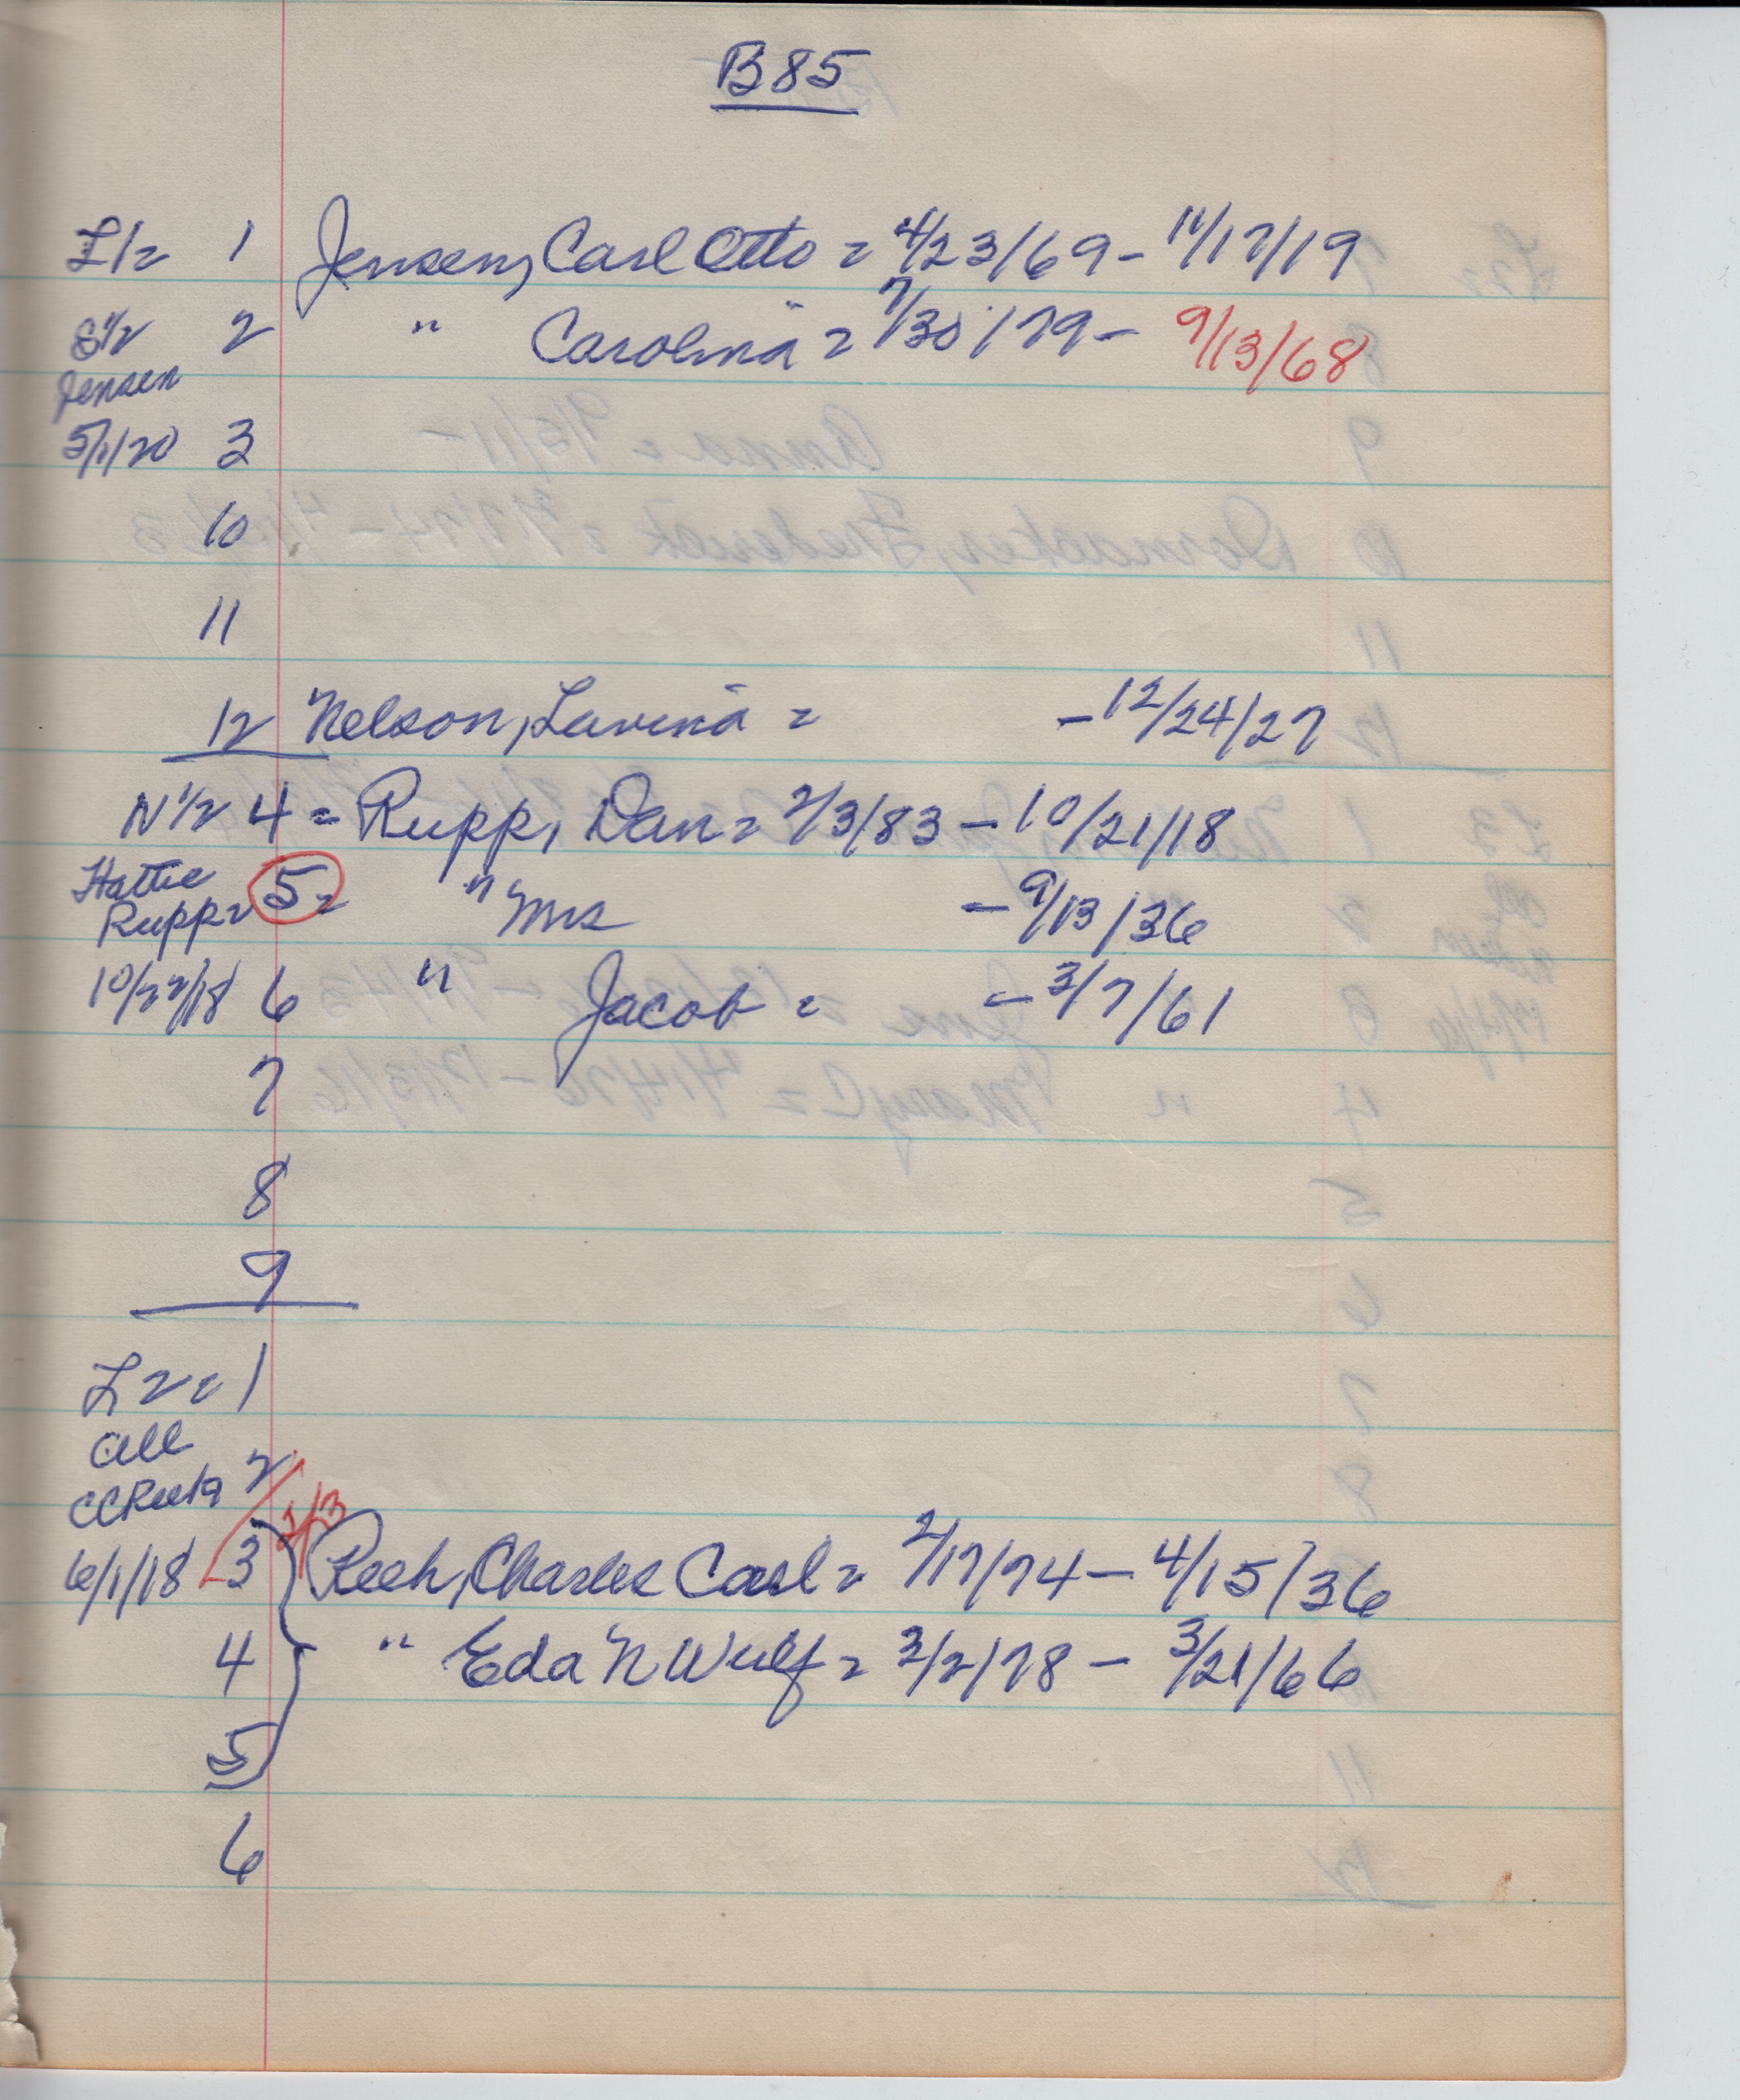 B85
L1= 1 Jensen, Carl Otto = 4/23/69 - 11/17/19
S1/2 2 " Carolina = 7/30/79 - 9/13/68
Jensen
5/1/20 3
10
11
12 Nelson, Lavina = - 12/24/27
N1/2 4 = Rupp, Dan = 2/3/83 - 10/21/18
Hattie 5 = " Mrs - 9/13/36
Rupp =
10/22/18 6 " Jacob = - 3/7/61
7
8
9
L2 = 1
All
2
6/1/18 3 Reeh, Charles Carl = 2/17/74 - 4/15/36
4 " Eda N Wulf = 3/2/78 - 3/21/66
5
6